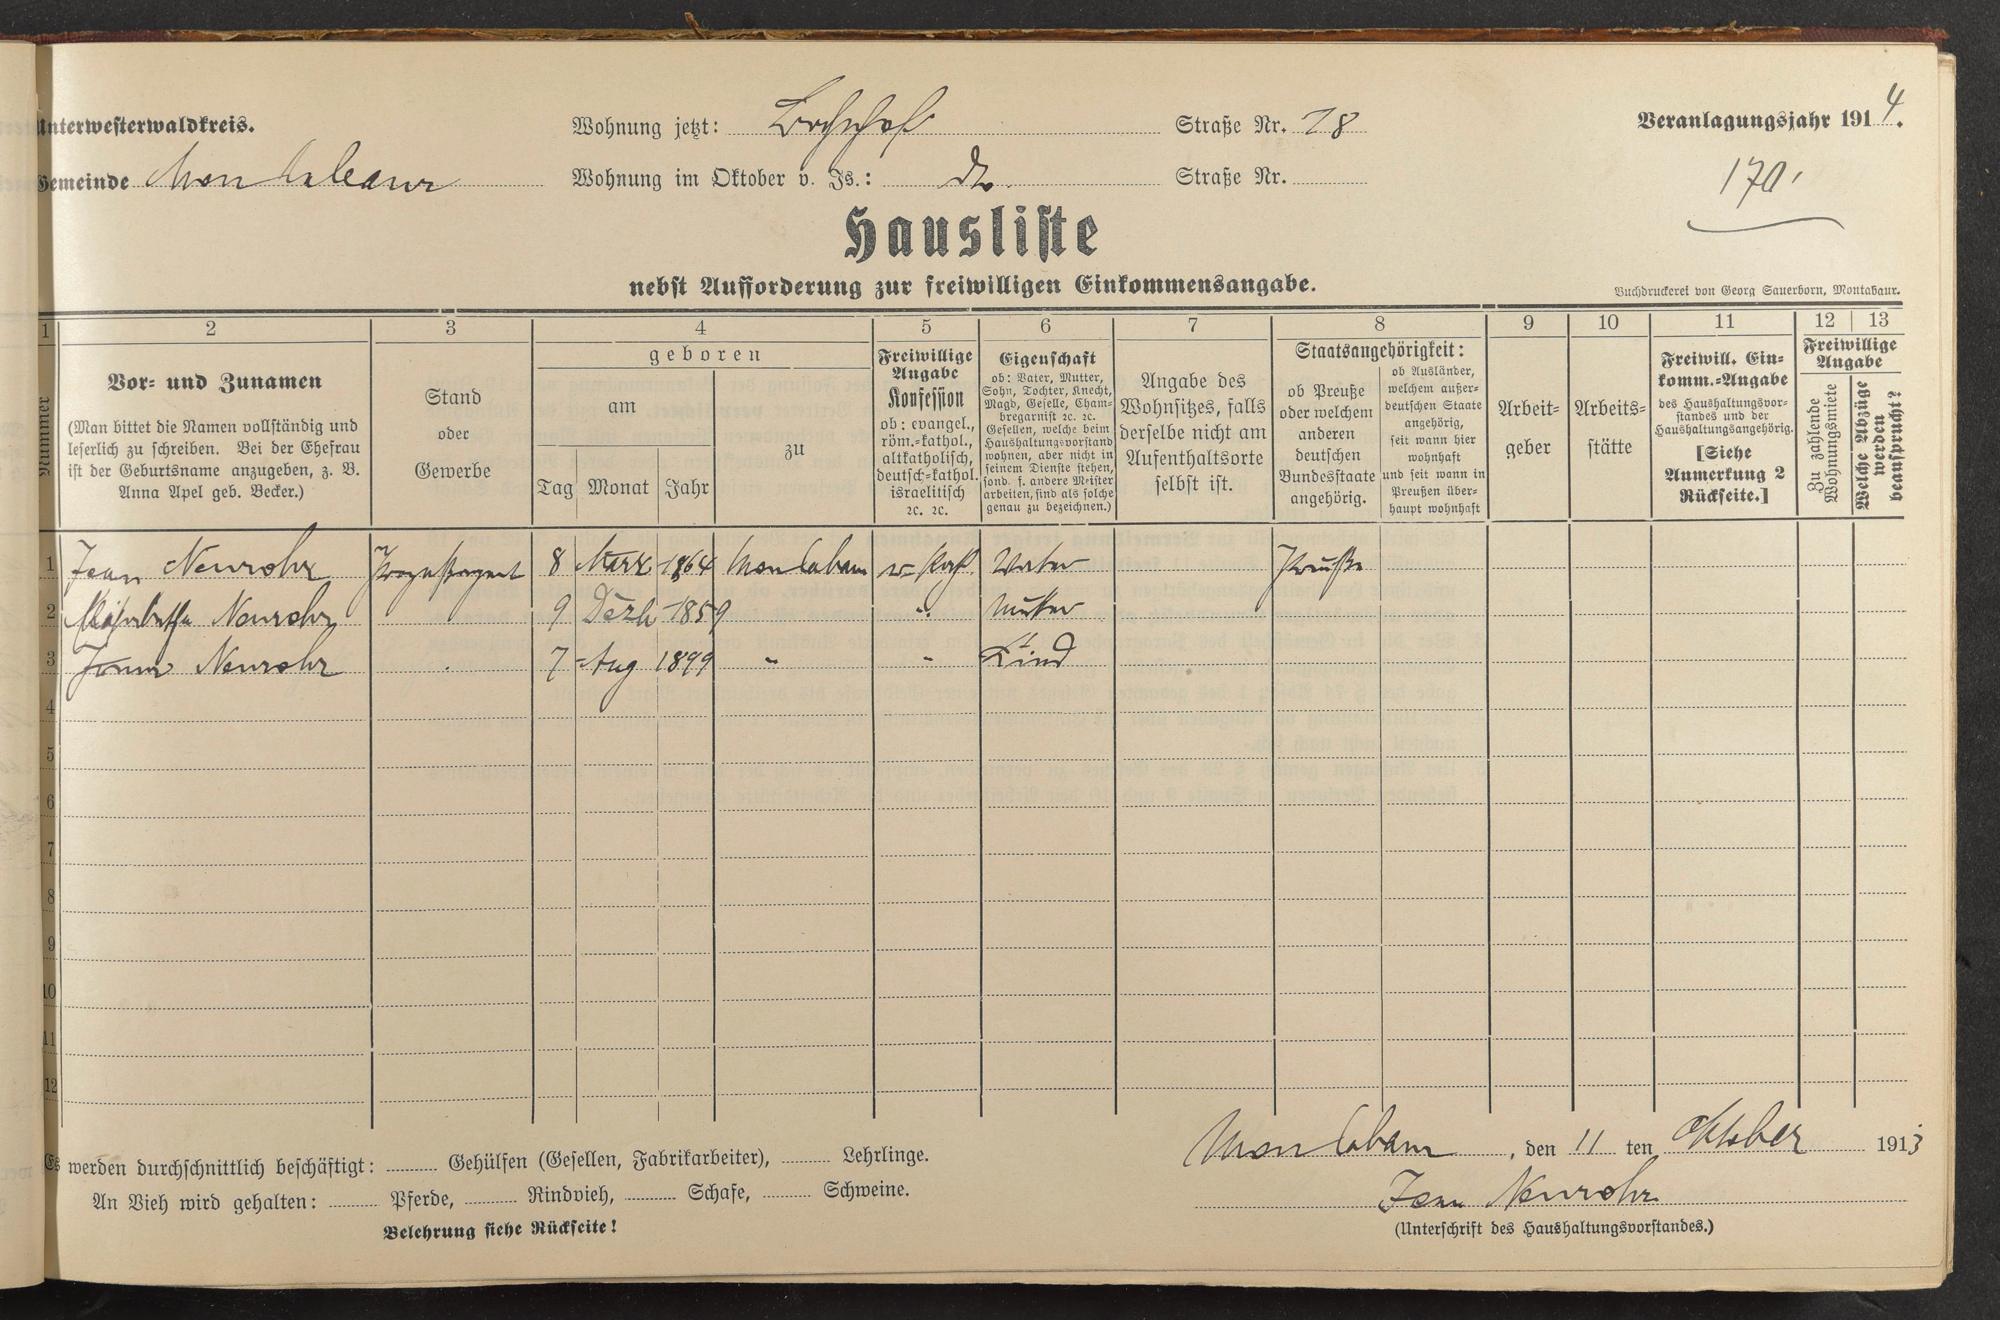 Unterwesterwaldkreis.
Wohnung jetzt: Straße Nr. 18
Veranlagungsjahr 1914.
Gemeinde Montabaur
Wohnung im Oktober v. Js.: do. Straße Nr.
170
Hausliste
nebst Aufforderung zur freiwilligen Einkommensangabe.
Buchdruckerei von Georg Sauerborn, Montabaur.
1 2 3 4 5 6 7 8 9 10 11 12 13
Nummer
Vor- und Zunamen
(Man bittet die Namen vollständig und
leserlich zu schreiben. Bei der Ehefrau
ist der Geburtsname anzugeben, z. B.
Anna Apel geb. Becker.)
Stand
oder
Gewerbe
geboren
am
Tag Monat Jahr
zu
Freiwillige
Angabe
Konfession
ob: evangel.,
röm.-kathol.,
altkatholisch,
deutsch-kathol.
israelitisch
ꝛc. ꝛc.
Eigenschaft
ob: Vater, Mutter,
Sohn, Tochter, Knecht,
Magd, Geselle, Cham-
bregarnist ꝛc. ꝛc.
Gesellen, welche beim
Haushaltungsvorstand
wohnen, aber nicht in
seinem Dienste stehen,
sond. f. andere Meister
arbeiten, sind als solche
genau zu bezeichnen.)
Angabe des
Wohnsitzes, falls
derselbe nicht am
Aufenthaltsorte
selbst ist.
Staatsangehörigkeit:
ob Preuße
oder welchem
anderen
deutschen
Bundesstaate
angehörig.
ob Ausländer,
welchem außer-
deutschen Staate
angehörig,
seit wann hier
wohnhaft
und seit wann in
Preußen über-
haupt wohnhaft
Arbeit-
geber
Arbeits-
stätte
Freiwill. Ein-
komm.-Angabe
des Haushaltungsvor-
standes und der
Haushaltungsangehörig.
[Siehe
Anmerkung 2
Rückseite.]
Freiwillige
Angabe
Zu zahlende
Wohnungsmiete
Welche Abzüge
werden
beansprucht?
1 Jean Neurohr Prozeßagent 8 März 1864 Montabaur r. kath. Vater Preuße
2 Neurohr 9 Dezb 1859 " Mutter
3 Neurohr 7 Aug 1899 " " Kind
4
5
6
7
8
9
10
11
12
Es werden durchschnittlich beschäftigt: Gehülfen (Gesellen, Fabrikarbeiter), Lehrlinge.
An Vieh wird gehalten: Pferde, Rindvieh, Schafe, Schweine.
Belehrung siehe Rückseite!
Montabaur, den 11 ten Oktober 1913
Jean Neurohr
(Unterschrift des Haushaltungsvorstandes.)